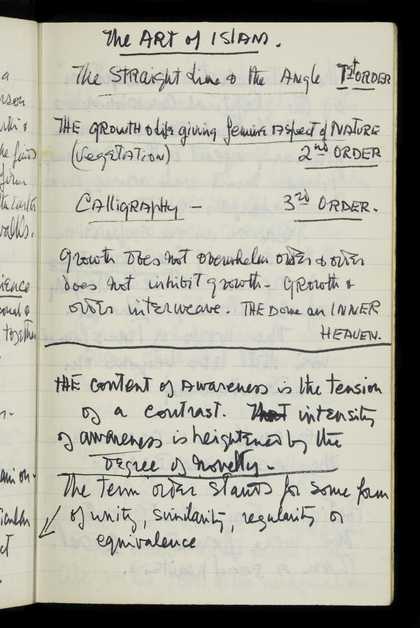 The ART of ISlAM.
The STRAIGHT line & the Angle 1st ORDER
THE GROWTH & life giving feminine Aspect of NATURE
(Vegetation) 2nd ORDER
CAlligRAphy - 3rd ORDER.
Growth does not overwhelm order & order
does not inhibit growth - Growth &
order interweave. THE Dome an INNER
HEAVEN.
THE content of Awareness is the tension
of a contrast. intensity
of awareness is heightened by the
Degree of Novelty.
The Term order stands for some form
of unity, similarity, regularity or
equivalence